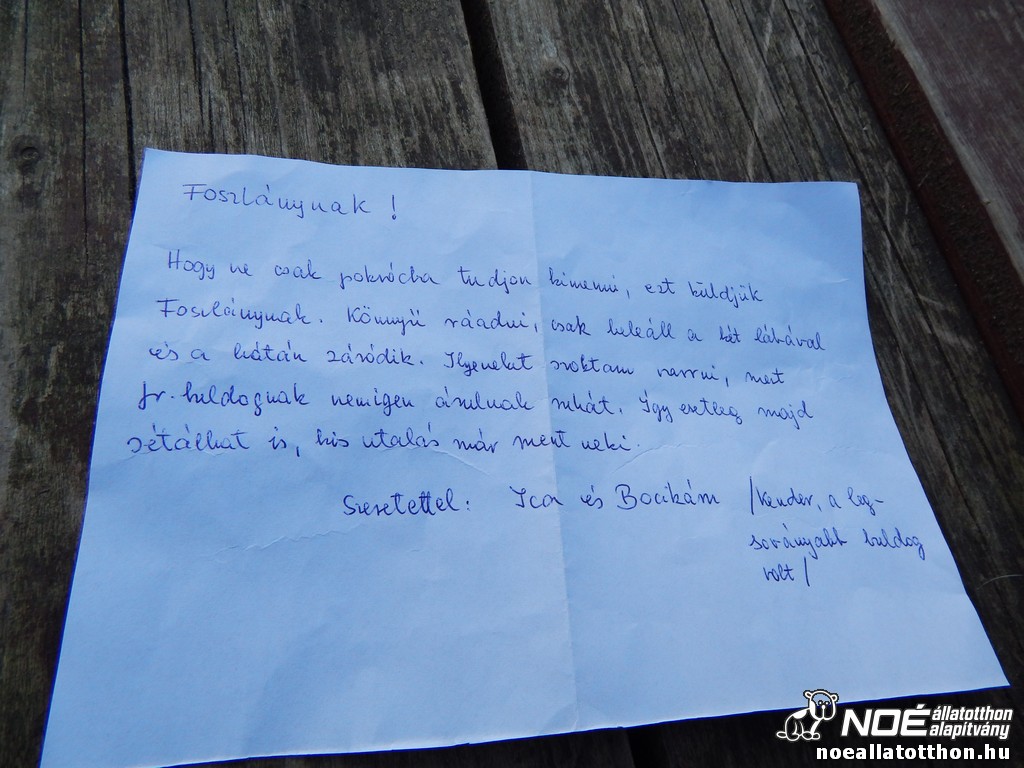 Foszlánynak !
Hogy ne csak pokrócba tudjon kimenni, ezt küldjük
Foszlánynak. Könnyű ráadni, csak beleáll a két lábával
és a hátán záródik. Ilyeneket szoktam varrni, mert
fr. buldognak nemigen árulnak ruhát. Így esetleg majd
sétálhat is, kis utalás már ment neki.
Szeretettel: Ica és Bocikám /Kender, a leg-
soványabb buldog
volt/
NOÉ állatotthon
alapítvány
noeallatotthon.hu